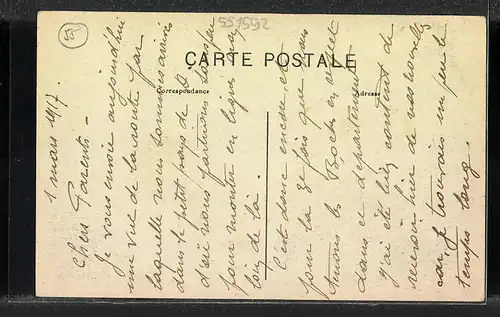 551592
CARTE POSTALE
Correspondance
Adresse
1 mars 1917
Chers Parents -
Je vous envoie aujourd'hui
une vue de la route par
laquelle nous sommes arrivés
dans le petit pays de
d'où nous partirons
pour monter en ligne non
loin de là.
C'est donc encore, et
pour la 3e fois que nous
les Boches
dans ce département
J'ai été bien content de
recevoir hier de vos nouvelles
car je trouvais un peu le
temps long.